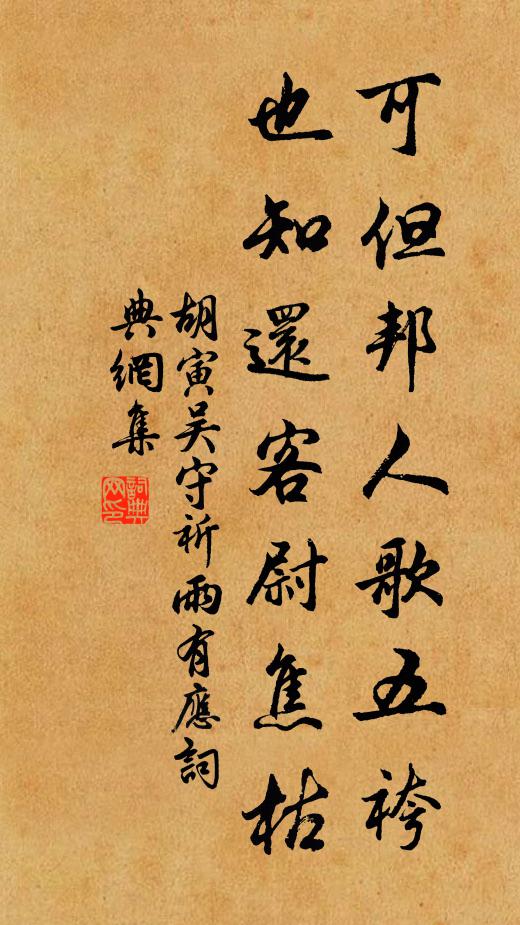 可但邦人歌五袴
也知還客尉焦枯
胡寅吴守祈雨有應詞
典網集
詞典
网印